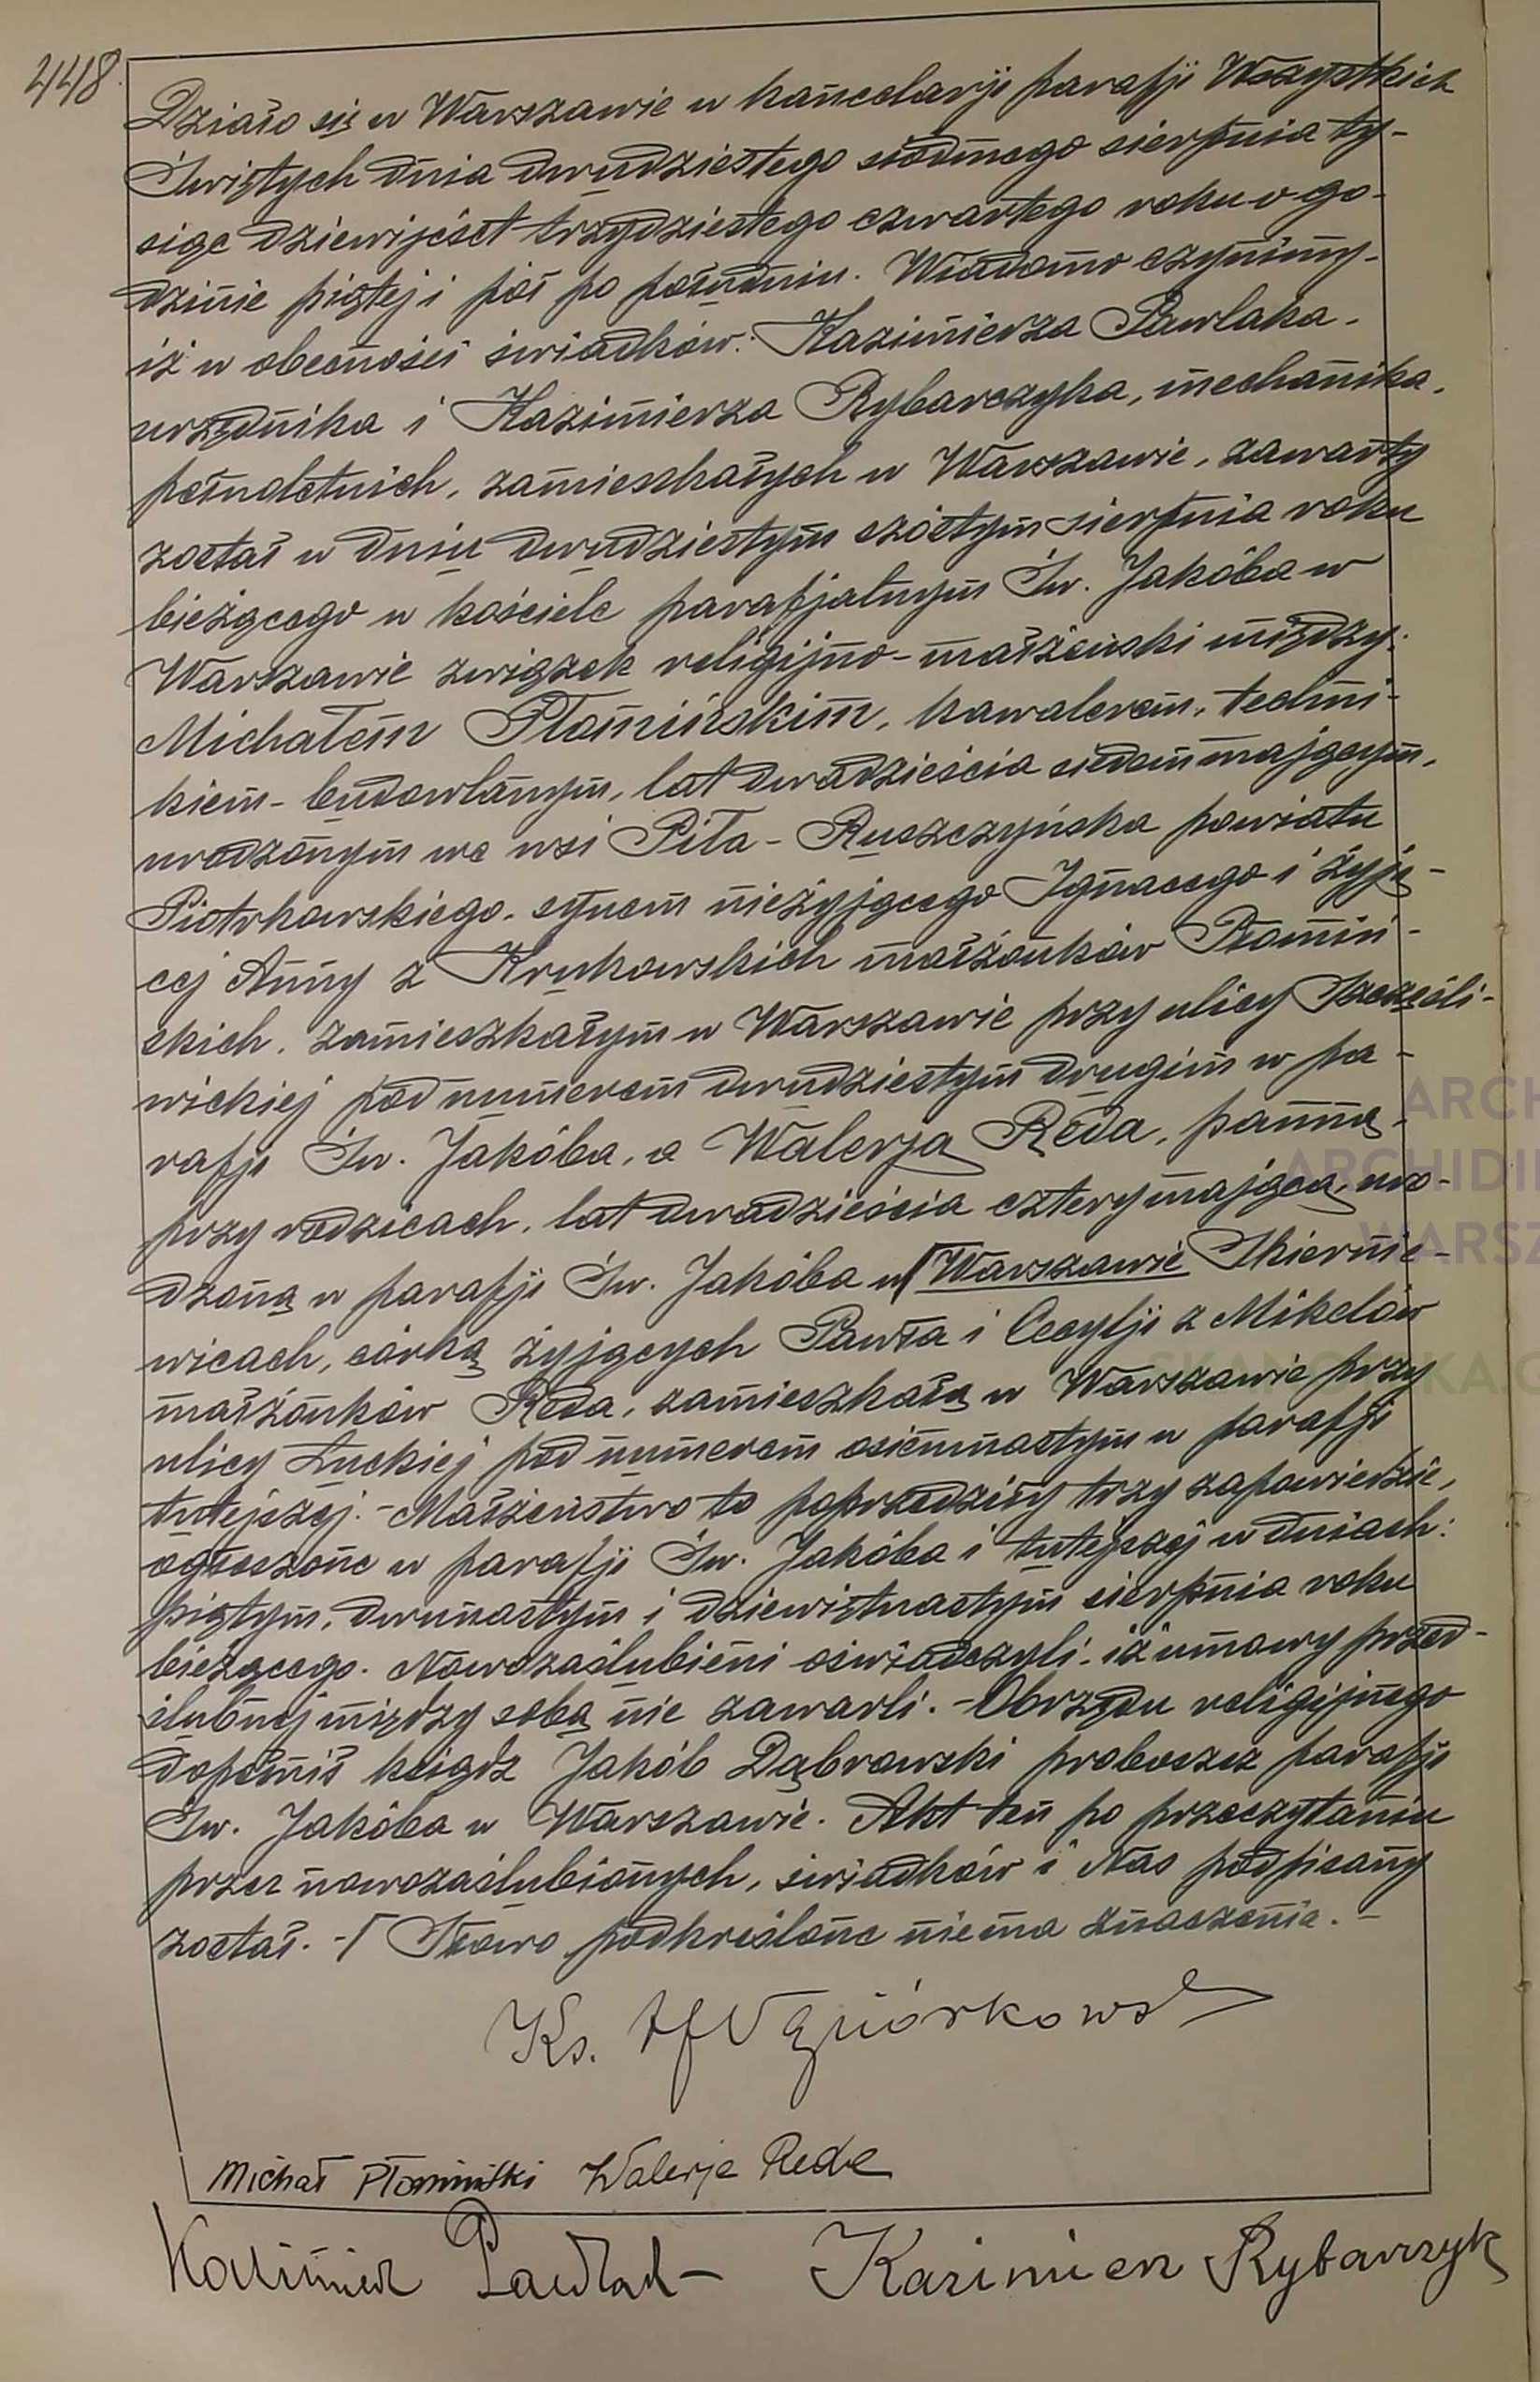 448
Działo się w Warszawie w kancelarji parafji Wszystkich
Świętych dnia dwudziestego siódmego sierpnia ty-
siąc dziewięćset trzydziestego czwartego roku o go-
dzinie piątej i pół po południu. Wiadomo czynimy,
iż w obecności świadków: Kazimierza Pawlaka,
urzędnika i Kazimierza Rybarczyka, mechanika,
pełnoletnich, zamieszkałych w Warszawie, zawarty
został w dniu dwudziestym szóstym sierpnia roku
bieżącego w kościele parafjalnym Św. Jakóba w
Warszawie związek religijno-małżeński między:
Michałem Płomińskim, kawalerem, techni-
kiem-budowlanym, lat dwadzieścia siedem mającym,
urodzonym we wsi Piła-Ruszczyńska powiatu
Piotrkowskiego, synem nieżyjącego Ignacego i żyją-
cej Anny z Krukowskich małżonków Płomiń-
skich, zamieszkałym w Warszawie przy ulicy Szczęśli-
wickiej pod numerem dwudziestym drugim w pa-
rafji Św. Jakóba, a Walerją Reda, panną,
przy rodzicach, lat dwadzieścia cztery mającą, uro-
dzoną w parafji Św. Jakóba w Warszawie Skiernie-
wicach, córką żyjących Pawła i Cecylji z Mikelów
małżonków Reda, zamieszkałą w Warszawie przy
ulicy Łuckiej pod numerem osiemnastym w parafji
tutejszej.-Małżeństwo to poprzedziły trzy zapowiedzie,
ogłoszone w parafji Św. Jakóba i tutejszej w dniach:
piątym, dwunastym i dziewiętnastym sierpnia roku
bieżącego. Nowozaślubieni oświadczyli, iż umowy przed-
ślubnej między sobą nie zawarli.-Obrzędu religijnego
dopełnił ksiądz Jakób Dąbrowski proboszcz parafji
Św. Jakóba w Warszawie. Akt ten po przeczytaniu
przez nowozaślubionych, świadków i Nas podpisany
został.- Słowo podkreślone niema znaczenia.-
Ks.
Michał Płomiński Walerja Reda
Kazimierz Pawlak Kazimierz Rybarczyk